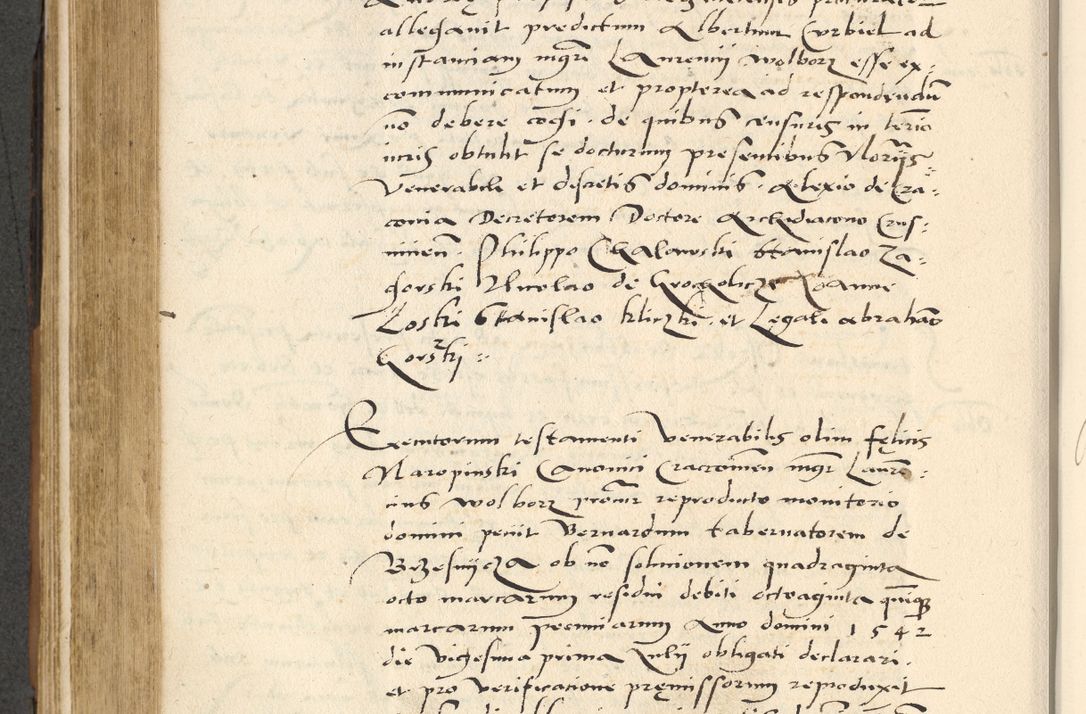 allegavit predictum Albertum Curbiel ad
instanciam mgri Laurencii Wolborz esse ex-
communicatum et propterea ad respondendū
nō debere cogi. de quibus censuris in terīo
iuris obtulit se docturum presentibus Norīis
Venerabile et discretis dominis. Alexio de Cza-
conia Decretorem Doctore Archidiacono Crus-
uicen. Philippo Chalawski Stanislao Za-
gorski Nicolao de Grocholicze Joanne
Loski Stanislao Kliczki. et Legati Abrahamo
Gorski
Executorum testamenti Venerabilis olim Felicis
Naropinski Canonici Cracovien mgr Lauren-
cius Wolborz procur reproducto monitorio
domini petiit Bernardum tabernatorem de
Brzesnycza ob nō solucionem quadraginta
octo marcarum residui debiti octoaginta quinque
marcarum pecuniarum Anno domini 1542
die Vigesima prima Julii obligati declarari.
et pro verificacione premissorum reproduxit